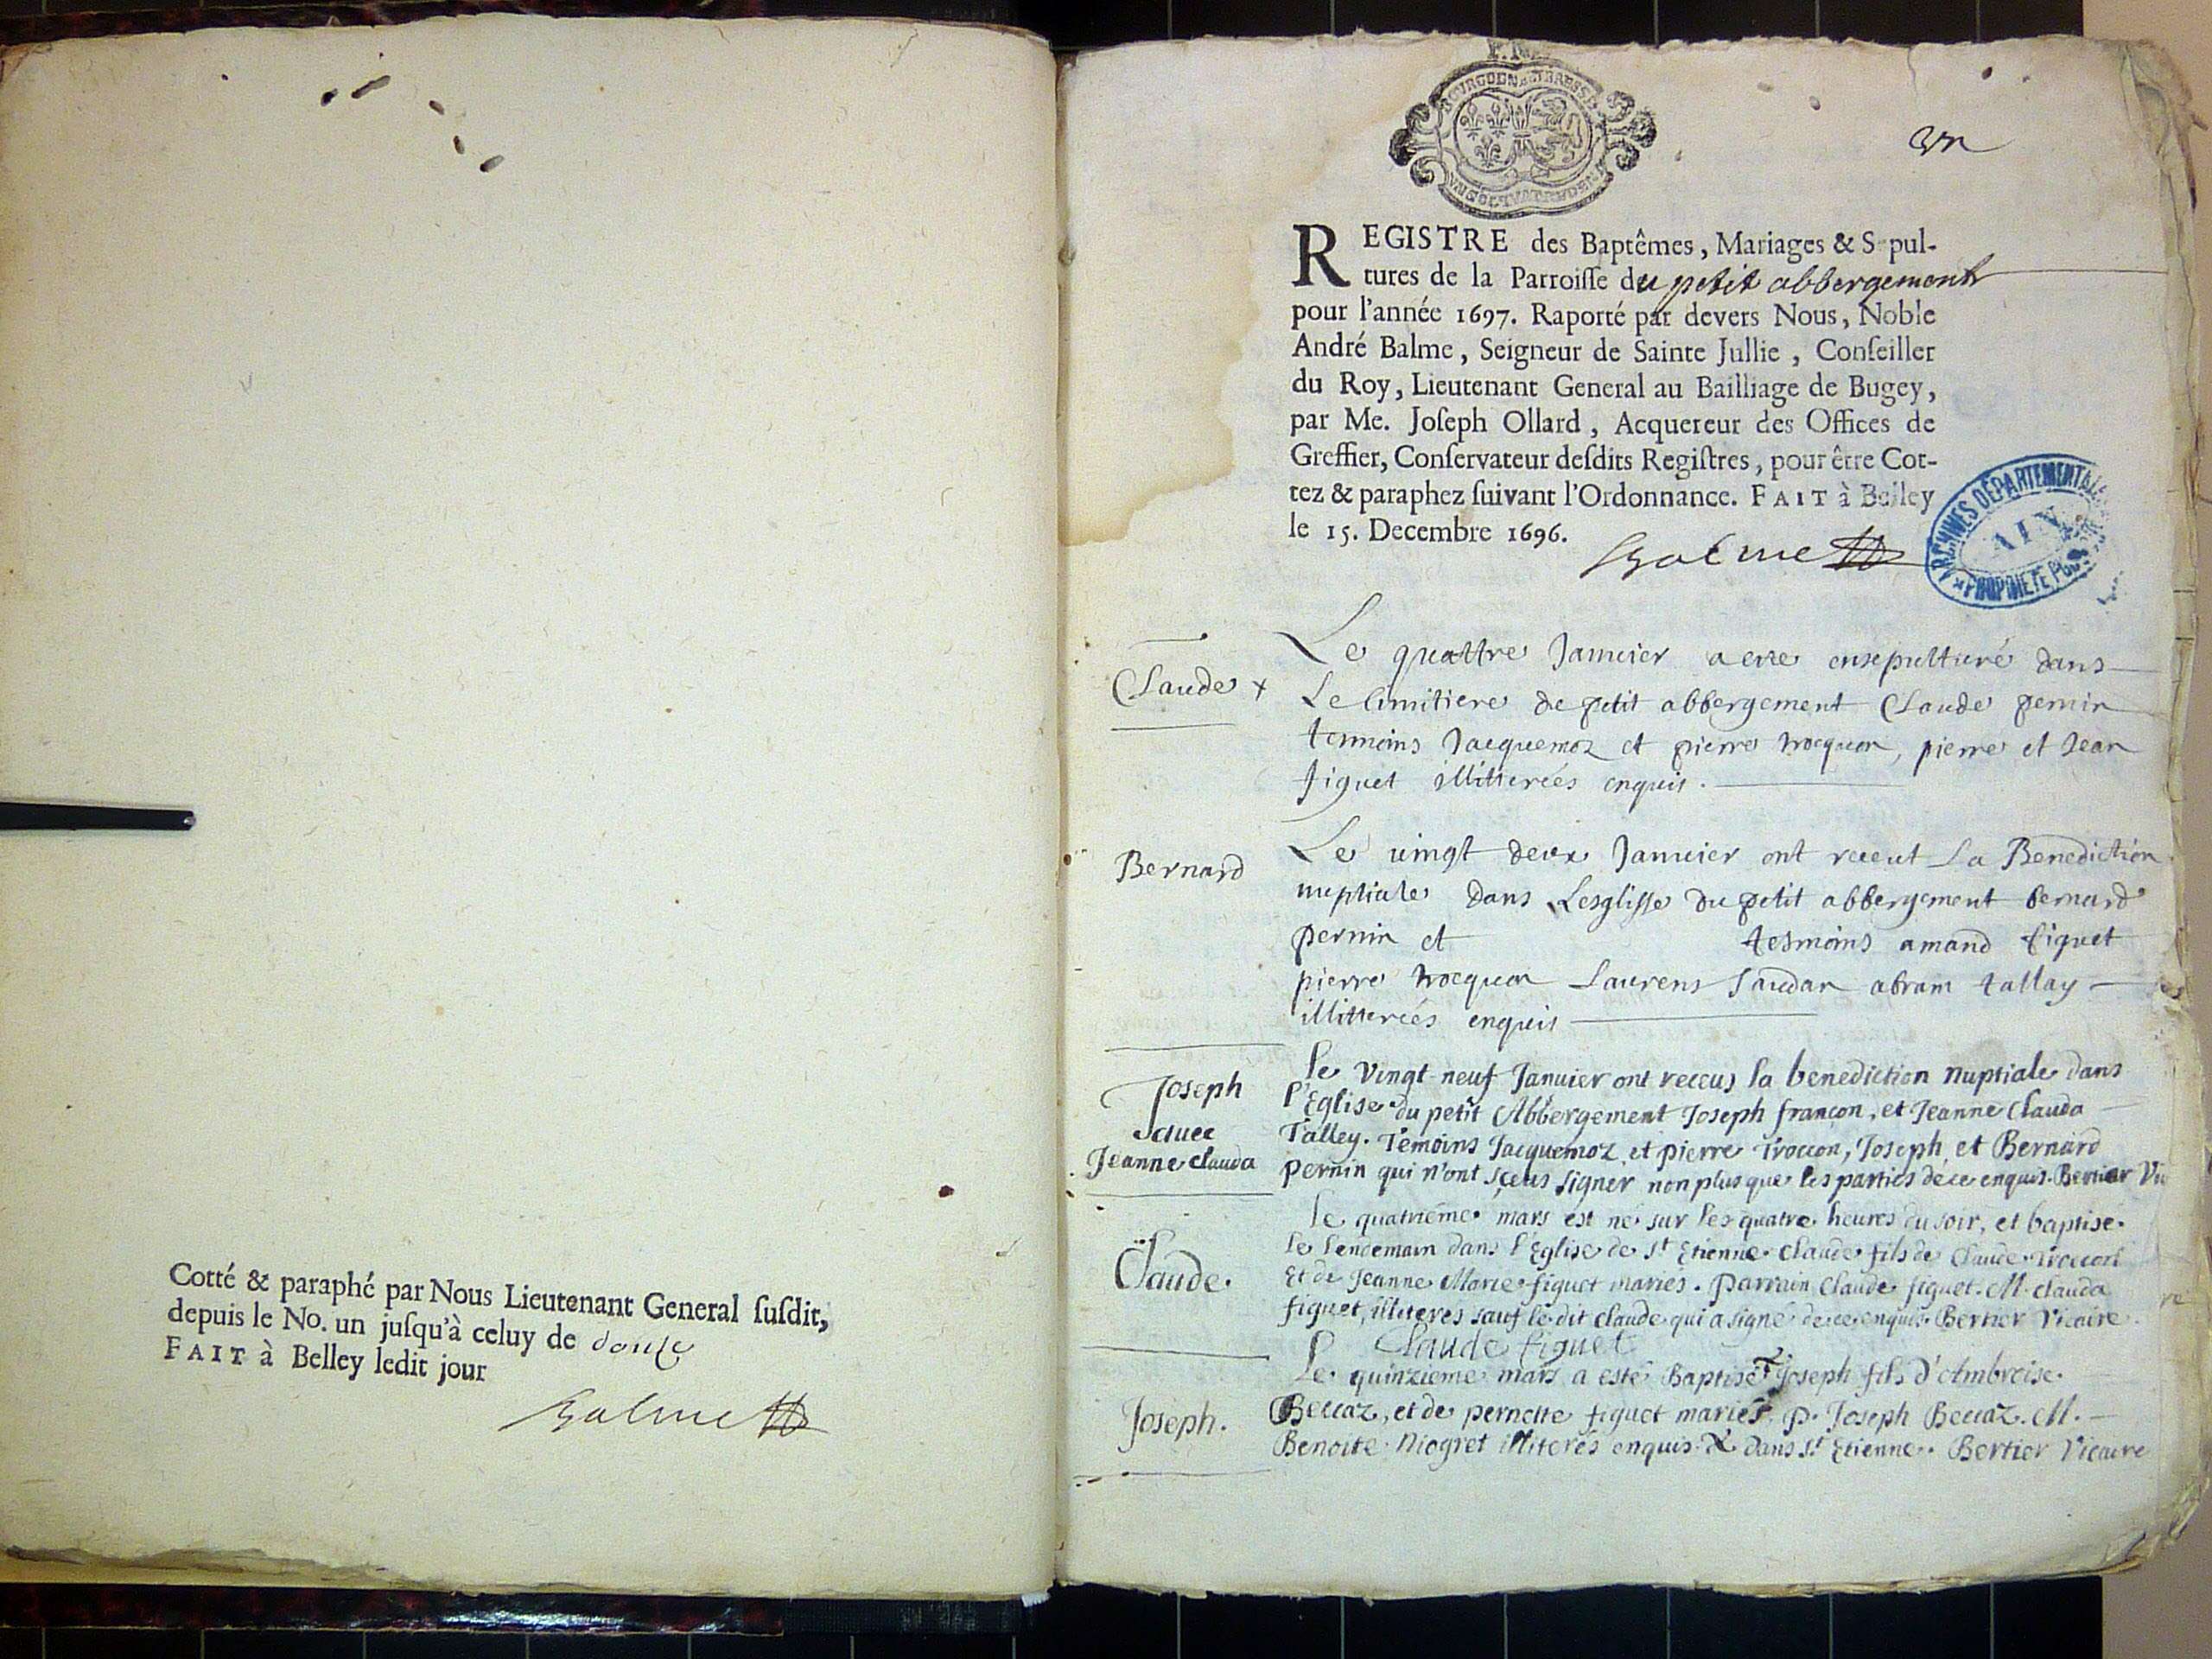 Cotté & paraphé par Nous Lieutenant General ſuſdit,
depuis le No. un juſqu'à celuy de douse
FAIT à Belley ledit jour
Balme
un
REGISTRE des Baptêmes, Mariages & S pul-
tures de la Parroiſſe du petit abbergement
pour l'année 1697. Raporté par devers Nous, Noble
André Balme, Seigneur de Sainte Jullie, Conſeiller
du Roy, Lieutenant General au Bailliage de Bugey,
par Me. Joſeph Ollard, Acquereur des Offices de
Greffier, Conſervateur deſdits Regiſtres, pour être Cot-
tez & paraphez ſuivant l'Ordonnance. FAIT à Belley
le 15. Decembre 1696.
Balme
ARCHIVES DÉPARTEMENTALES
AIN
PROPRIÉTÉ PUB
Claude +
Le quattre Januier a este ensepulturé dans
Le Cimitiere de petit abbergement Claude pernin
tesmoins Jacquemoz et pierre trocquon, pierre et Jean
figuet illitterées enquis.
Bernard
Le uingt deux Januier ont receut La Benediction
nuptiale dans Lesglisse du petit abbergement bernard
pernin et tesmoins amand figuet
pierre trocquon Laurens Jaudan abram tallay
illitterées enquis
Joseph
auec
Jeanne clauda
le Vingt neuf Januier ont receus la benediction nuptiale dans
l'Eglise du petit Abbergement Joseph francon, et Jeanne Clauda
Talley. Temoins Jacquemoz et pierre Troccon, Joseph et Bernard
pernin qui n'ont sçeus signer non plus que les parties de ce enquis. Bertier Vic
Claude.
le quatrieme mars est né sur les quatre heures du soir, et baptisé
le lendemain dans l'Eglise de St Etienne Claude fils de Claude Troccon
Et de Jeanne Marie figuet mariés. Parrain Claude figuet. M. clauda
figuet, illiterés sauf le dit claude qui a signé de ce enquis. Bertier Vicaire.
Claude figuet
Joseph.
Le quinzieme mars a esté Baptisé Joseph fils d'Ambroise
Beccaz, et de pernette figuet mariés. P. Joseph Beccaz. M.
Benoite Niogret illiterés enquis. dans St Etienne. Bertier Vicaire